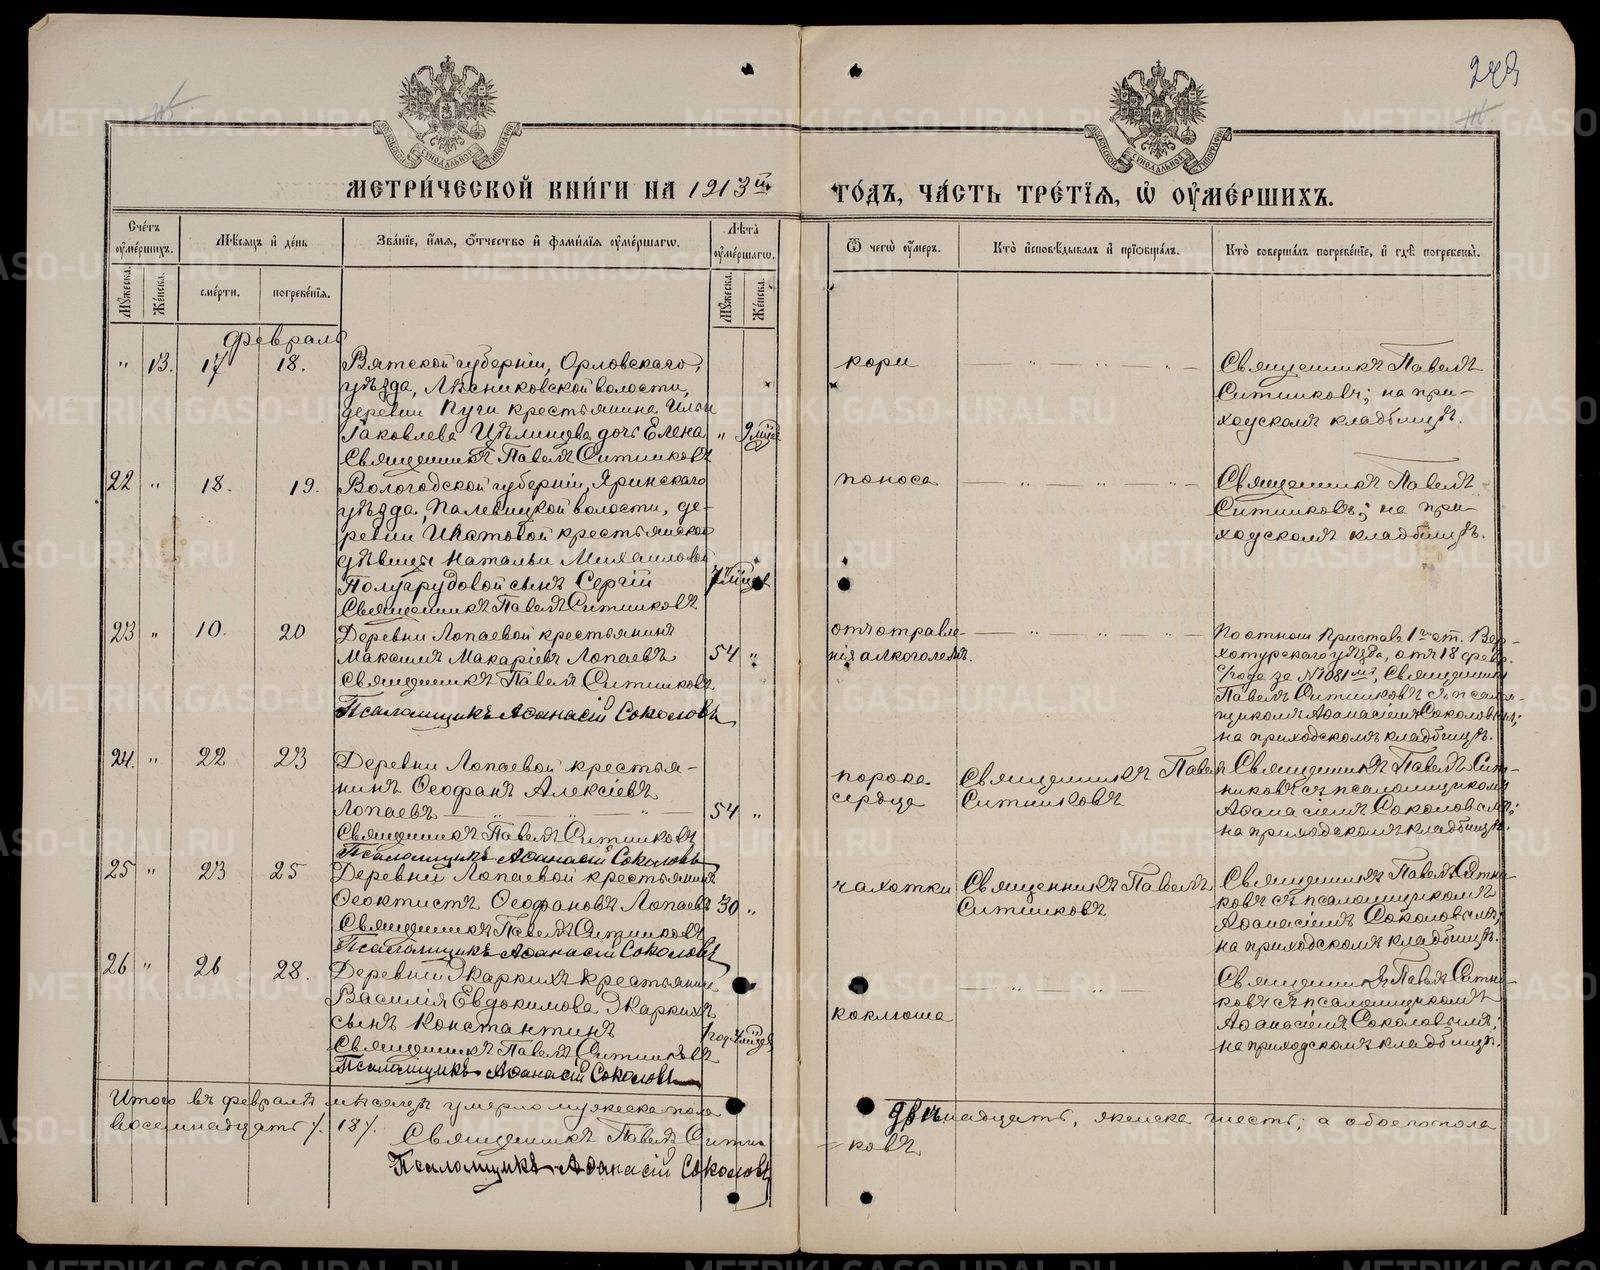 243
МЕТРИ́ЧЕСКОЙ КНИ́ГИ НА 1913й
ГО́ДЪ, ЧА́СТЬ ТРЕ́ТЇѦ, Ѡ҆ ОУ҆МЕ́РШИХЪ.
Сче́тъ оу҆ме́ршихъ.
Мꙋ́жеска.
Же́нска.
Мѣ́сѧцъ и҆ де́нь
сме́рти.
погребе́нїѧ.
Зва́нїе, и҆́мѧ, ѻ҆́тчество и҆ фами́лїѧ оу҆ме́ршагѡ.
Лѣ́та оу҆ме́ршагѡ.
Мꙋ́жеска.
Же́нска.
Ѿ чегѡ̀ оу҆́меръ.
Кто̀ и҆сповѣ́дывалъ и҆ прїѡбща́лъ.
Кто̀ соверша́лъ погребе́нїе, и҆ гдѣ̀ погребены̀.
Февраль
" 13. 17 18.
Вятской губерніи, Орловскаго,
уѣзда, Лѣсниковской волости,
деревни Пуги крестьянина Ильи
Іаковлева Цѣлищева дочь Елена " 9 мѣс.
Священникъ Павелъ Ситниковъ
кори
Священникъ Павелъ
Ситниковъ; на при-
ходскомъ кладбищѣ.
22 " 18. 19.
Вологодской губерніи, Яринскаго
уѣзда, Палевицкой волости, де-
ревни крестьянской
дѣвицы Натальи Михаиловой
Полугрудовой сынъ Сергій
Священникъ Павелъ Ситниковъ
поноса
Священникъ Павелъ
Ситниковъ; на при-
ходскомъ кладбищѣ.
23 " 10. 20
Деревни Лопаевой крестьянинъ
Максимъ Макаріевъ Лопаевъ 54 "
Священникъ Павелъ Ситниковъ
Псаломщикъ Аѳанасій Соколовъ
отъ отравле-
нія алкоголемъ.
По отнош. Пристава 1го ст. Вер-
хотурскаго уѣзда, отъ 18 февр.
с/года за № 1081мъ, Священникъ
Павелъ Ситниковъ съ псалом-
щикомъ Аѳанасіемъ Соколовымъ;
на приходскомъ кладбищѣ.
24. " 22 23
Деревни Лопаевой крестья-
нинъ Ѳеофанъ Алексіевъ
Лопаевъ 54 "
Священникъ Павелъ Ситниковъ
Псаломщикъ Аѳанасій Соколовъ
порока
сердца
Священникъ Павелъ
Ситниковъ
Священникъ Павелъ Сит-
никовъ съ псаломщикомъ
Аѳанасіемъ Соколовымъ;
на приходскомъ кладбищѣ.
25 " 23 25
Деревни Лопаевой крестьянинъ
Ѳеоктистъ Ѳеофановъ Лопаевъ 30 "
Священникъ Павелъ Ситниковъ
Псаломщикъ Аѳанасій Соколовъ
чахотки
Священникъ Павелъ
Ситниковъ
Священникъ Павелъ Ситни-
ковъ съ псаломщикомъ
Аѳанасіемъ Соколовымъ;
на приходскомъ кладбищѣ.
26 " 26 28.
Деревни Жаркихъ крестьянина
Василія Евдокимова Жаркихъ
сынъ Константинъ 1 год. 4 мѣс.
Священникъ Павелъ Ситниковъ
Псаломщикъ Аѳанасій Соколовъ
коклюша
Священникъ Павелъ Ситни-
ковъ съ псаломщикомъ
Аѳанасіемъ Соколовымъ;
на приходскомъ кладбищѣ.
Итого въ февралѣ мѣсяцѣ умерло мужеска пола двѣнадцать, женска шесть; а обоего пола
восемнадцать /. 18 /.
Священникъ Павелъ Ситни-
=ковъ.
Псаломщикъ Аѳанасій Соколовъ
METRIKI.GASO-URAL.RU